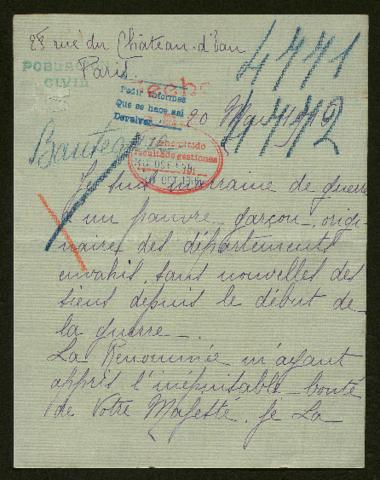 28 rue du Château-d'Eau
Paris.
POBLACIÓN
CIVIL
Hecho
4771
4772
Pedir informes
Que se hace así
Devolver
20 Mars
Je suis marraine de guerre
d'un pauvre garçon, origi-
naire des départements
envahis, sans nouvelles des
siens depuis le début de
la guerre.
La Renommée m'ayant
appris l'inépuisable bonté
de Votre Majesté, je La